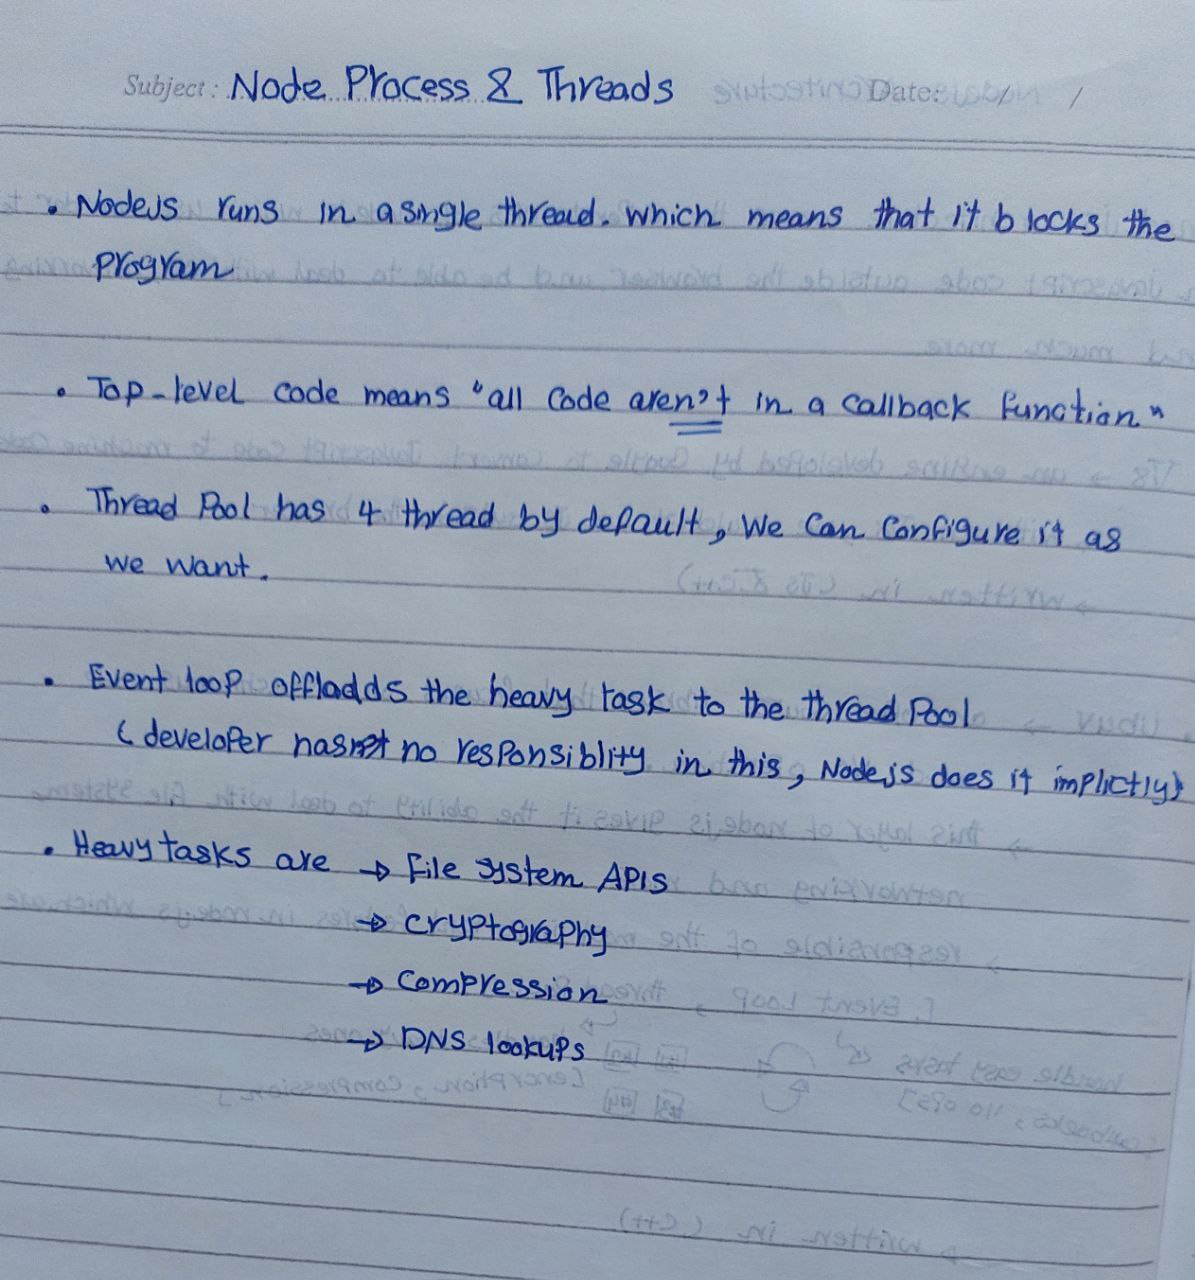 Subject: Node Process & Threads Date: / /
• Nodejs runs in a single thread. which means that it blocks the
program
• Top-level code means "all code aren't in a callback function"
• Thread Pool has 4 thread by default, We Can Configure it as
we want.
• Event loop offladds the heavy task to the thread Pool
(developer has no responsiblity in this, Nodejs does it implictly)
• Heavy tasks are → File system APIs
→ cryptography
→ Compression
→ DNS lookups